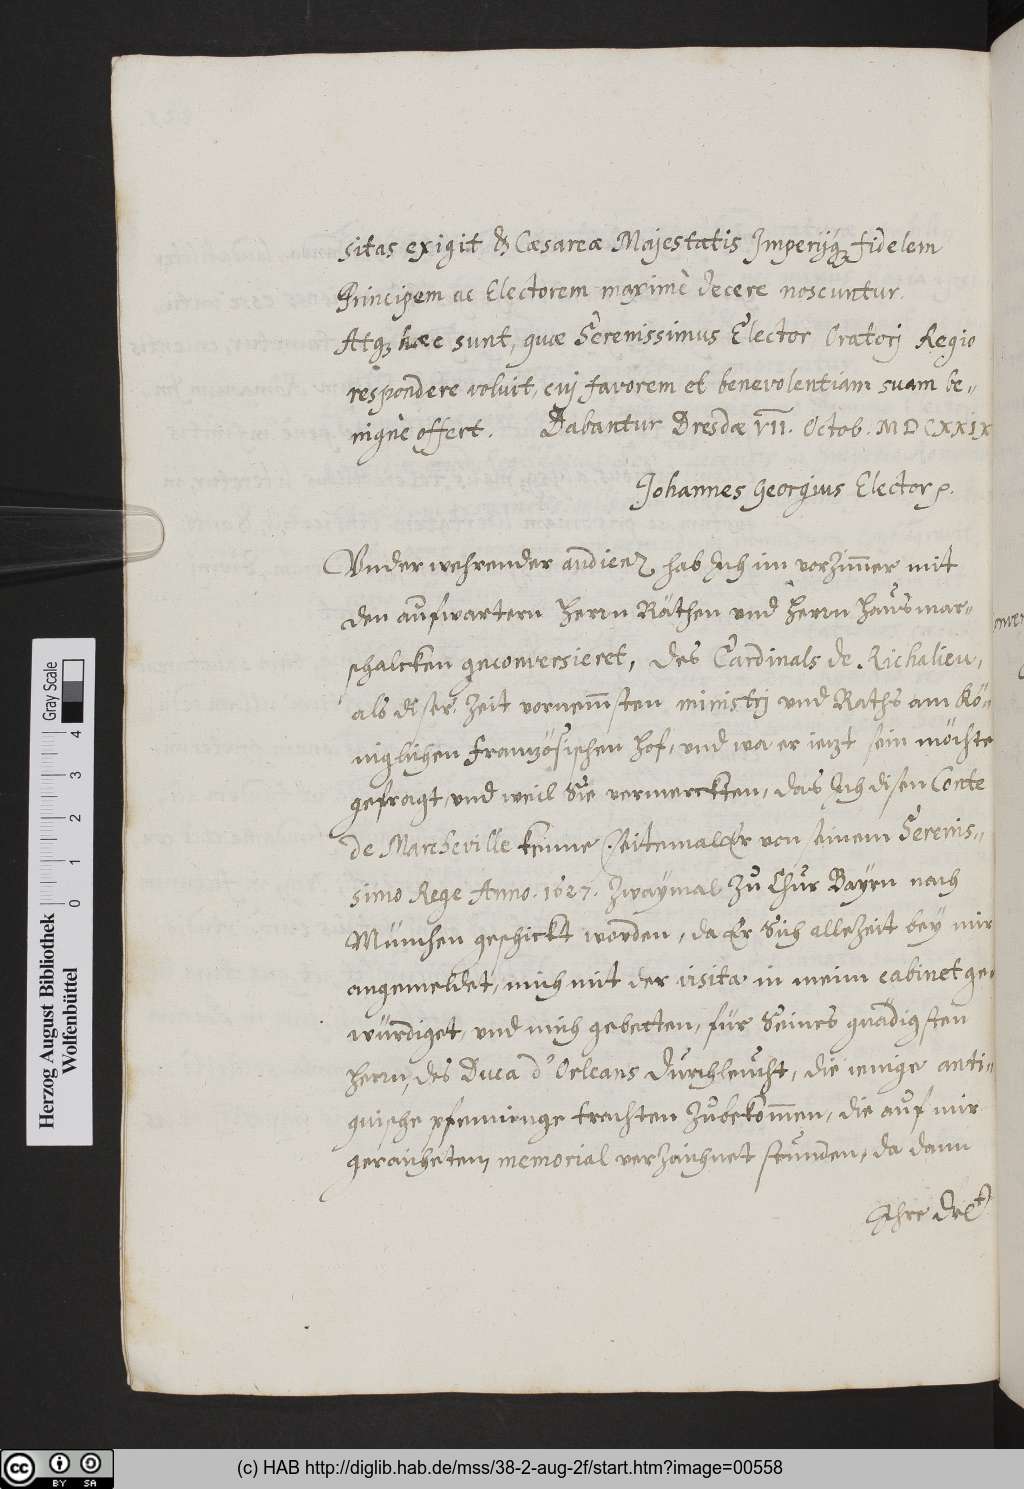 sitas exigit & Cæsareæ Majestatis Imperijq3 fidelem
Principem ac Electorem maximè decere noscuntur.
Atq3 hæc sunt, quæ Serenissimus Elector Oratorj Regio
respondere voluit, cuj favorem et benevolentiam suam be-
nignè offert. Dabantur Dresdæ VII. Octob. MDCXXIX
Johannes Georgius Elector p.
Vnder wehrender audienz hab Ich im vorzim̄er mit
den aufwartern Herrn Räthen und Herrn Hausmar-
schalcken geconversieret, des Cardinals de Richalieu,
als diser Zeit vornem̄sten ministrj und Raths am Kö-
niglichen Französischen Hof, und wa er iezt sein möchte
gefragt, und weil Sie vermerckten, das Ich disen Conte
de Marcheville kenne (seitemal Er von seinem Serenis-
simo Rege Anno. 1627. zwaymal zu Chur Bayrn nach
München geschickt worden, da Er Sich allezeit bey mir
angemeldet, mich mit der visita in meim cabinet ge-
würdiget, und mich gebetten, für Seines gnädigsten
Herrn, des Duca d'Orleans Durchleucht, die ienige anti-
quische pfenninge trachten zubekom̄en, die auf mir
geraichetem memorial verzaichnet stunden, da dann
Ihre Drlt
Herzog August Bibliothek
Wolfenbüttel
0 1 2 3 4
Gray Scale
cc BY SA
(c) HAB http://diglib.hab.de/mss/38-2-aug-2f/start.htm?image=00558